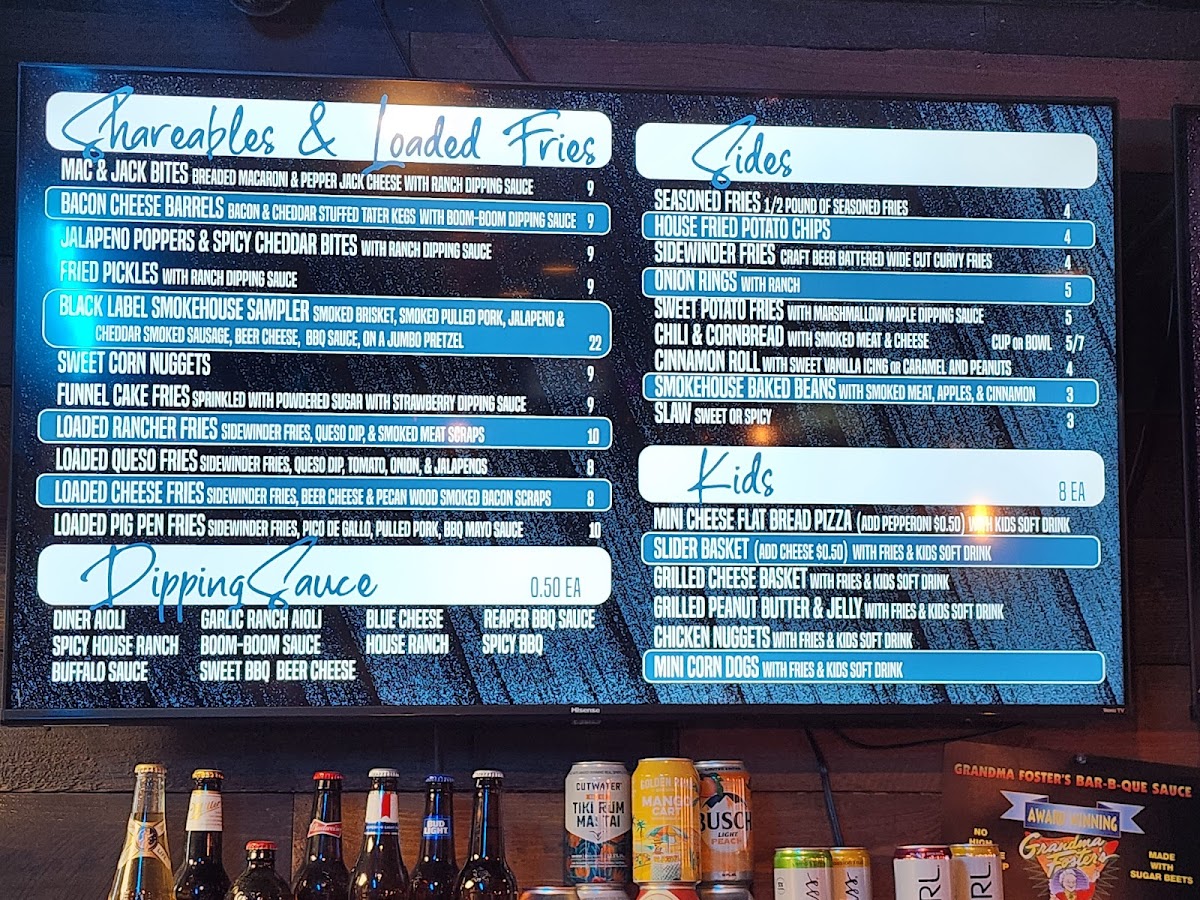 Shareables & Loaded Fries
MAC & JACK BITES BREADED MACARONI & PEPPER JACK CHEESE WITH RANCH DIPPING SAUCE 9
BACON CHEESE BARRELS BACON & CHEDDAR STUFFED TATER KEGS WITH BOOM-BOOM DIPPING SAUCE 9
JALAPENO POPPERS & SPICY CHEDDAR BITES WITH RANCH DIPPING SAUCE 9
FRIED PICKLES WITH RANCH DIPPING SAUCE 9
BLACK LABEL SMOKEHOUSE SAMPLER SMOKED BRISKET, SMOKED PULLED PORK, JALAPENO &
CHEDDAR SMOKED SAUSAGE, BEER CHEESE, BBQ SAUCE, ON A JUMBO PRETZEL 22
SWEET CORN NUGGETS 9
FUNNEL CAKE FRIES SPRINKLED WITH POWDERED SUGAR WITH STRAWBERRY DIPPING SAUCE 9
LOADED RANCHER FRIES SIDEWINDER FRIES, QUESO DIP, & SMOKED MEAT SCRAPS 10
LOADED QUESO FRIES SIDEWINDER FRIES, QUESO DIP, TOMATO, ONION, & JALAPENOS 8
LOADED CHEESE FRIES SIDEWINDER FRIES, BEER CHEESE & PECAN WOOD SMOKED BACON SCRAPS 8
LOADED PIG PEN FRIES SIDEWINDER FRIES, PICO DE GALLO, PULLED PORK, BBQ MAYO SAUCE 10
Dipping Sauce 0.50 EA
DINER AIOLI GARLIC RANCH AIOLI BLUE CHEESE REAPER BBQ SAUCE
SPICY HOUSE RANCH BOOM-BOOM SAUCE HOUSE RANCH SPICY BBQ
BUFFALO SAUCE SWEET BBQ BEER CHEESE
Sides
SEASONED FRIES 1/2 POUND OF SEASONED FRIES 4
HOUSE FRIED POTATO CHIPS 4
SIDEWINDER FRIES CRAFT BEER BATTERED WIDE CUT CURVY FRIES 4
ONION RINGS WITH RANCH 5
SWEET POTATO FRIES WITH MARSHMALLOW MAPLE DIPPING SAUCE 5
CHILI & CORNBREAD WITH SMOKED MEAT & CHEESE CUP OR BOWL 5/7
CINNAMON ROLL WITH SWEET VANILLA ICING OR CARAMEL AND PEANUTS 4
SMOKEHOUSE BAKED BEANS WITH SMOKED MEAT, APPLES, & CINNAMON 3
SLAW SWEET OR SPICY 3
Kids 8 EA
MINI CHEESE FLAT BREAD PIZZA (ADD PEPPERONI $0.50) WITH KIDS SOFT DRINK
SLIDER BASKET (ADD CHEESE $0.50) WITH FRIES & KIDS SOFT DRINK
GRILLED CHEESE BASKET WITH FRIES & KIDS SOFT DRINK
GRILLED PEANUT BUTTER & JELLY WITH FRIES & KIDS SOFT DRINK
CHICKEN NUGGETS WITH FRIES & KIDS SOFT DRINK
MINI CORN DOGS WITH FRIES & KIDS SOFT DRINK
Hisense
Roku TV
BUD
LIGHT
CUTWATER
TIKI RUM
MAI TAI
MANGO
CART
BUSCH
LIGHT
PEACH
GRANDMA FOSTER'S BAR-B-QUE SAUCE
AWARD WINNING
Grandma
Foster's
NO
MADE
WITH
SUGAR BEETS